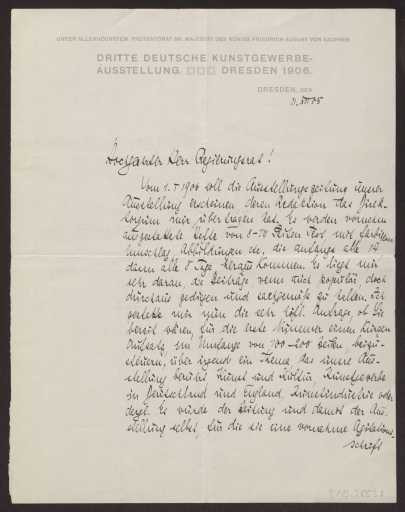 UNTER ALLERHÖCHSTEM PROTEKTORAT SR. MAJESTÄT DES KÖNIGS FRIEDRICH AUGUST VON SACHSEN
DRITTE DEUTSCHE KUNSTGEWERBE-
AUSSTELLUNG. DRESDEN 1906.
DRESDEN, DEN
XII 05
Hochgeehrter Herr Regierungsrat!
Vom 1. 1906 soll die Ausstellungszeitung unserer
Ausstellung erscheinen deren Redaktion das Direk-
torium mir übertragen hat. Es werden vornehm
ausgestattete Hefte von 8-10 Seiten Text mit farbigem
Umschlag, Abbildungen etc, die anfangs alle 14
dann alle 8 Tage herauskommen. Es liegt mir
sehr daran, die Beiträge wenn auch populär, doch
durchaus gediegen und sachgemäß zu halten. Ich
gestatte mir nun die sehr höfl. Anfrage, ob Sie
bereit wären, für die erste Nummer einen kurzen
Aufsatz im Umfange von 100-200 Zeilen beizu-
steuern, über irgend ein Thema das unsere Aus-
stellung berührt Kunst und Kultur, Kunstgewerbe
in Deutschland und England, Kunstindustrie oder
dergl. Es würde der Zeitung und damit der Au-
stellung selbst, für die sie eine vornehme Agitations-
schrift